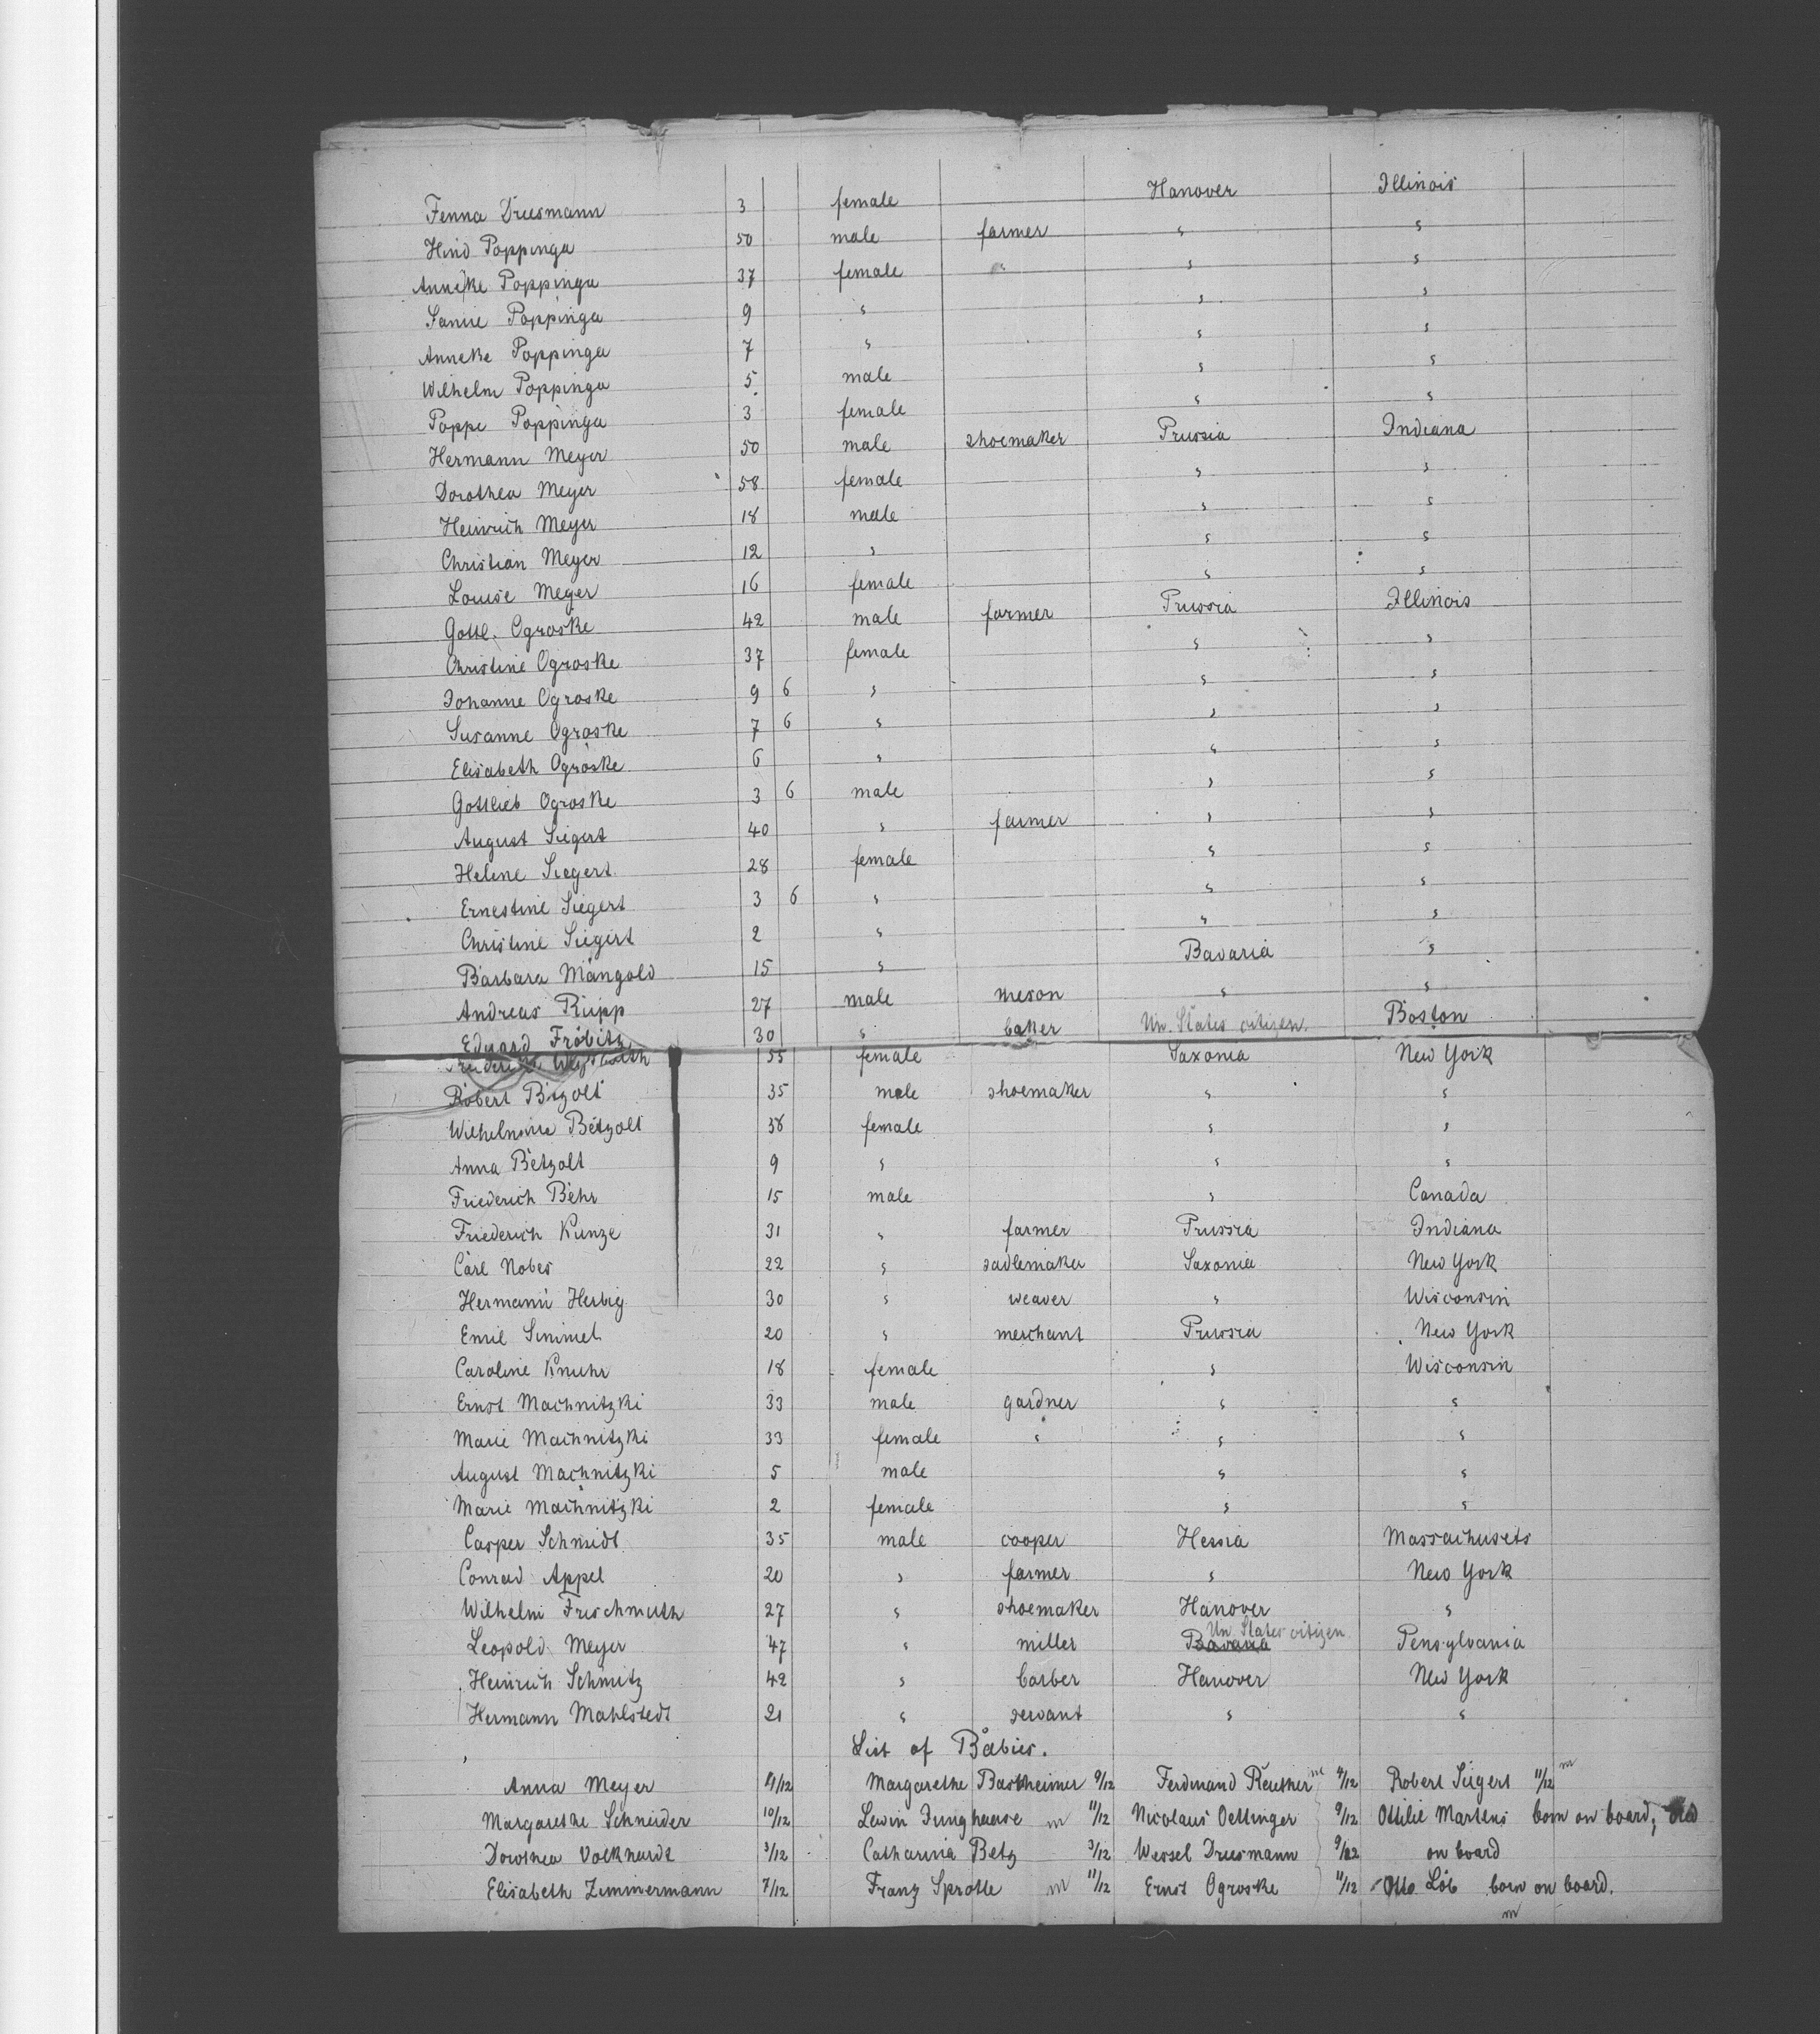 Fenna Driesmann 3 female Hanover Illinois
Hind Poppinga 50 male farmer " "
Anneke Poppinga 37 female " " "
Janne Poppinga 9 " " "
Anneke Poppinga 7 " " "
Wilhelm Poppinga 5 male " "
Poppe Poppinga 3 female " "
Hermann Meyer 50 male shoemaker Prussia Indiana
Dorothea Meyer 58 female " "
Heinrich Meyer 18 male " "
Christian Meyer 12 " " "
Louise Meyer 16 female " "
Gottl. Ogroske 42 male farmer Prussia Illinois
Christine Ogroske 37 female " "
Johanne Ogroske 9 6 " " "
Susanne Ogroske 7 6 " " "
Elisabeth Ogroske 6 " " "
Gottlieb Ogroske 3 6 male " "
August Siegert 40 " farmer " "
Helene Siegert 28 female " "
Ernestine Siegert 3 6 " " "
Christine Siegert 2 " " "
Barbara Mangold 15 " Bavaria "
Andreas Rupp 27 male meson " "
Eduard Fröbitz 30 " baker Un. States citizen. Boston
55 female Saxonia New York
Robert Betzolt 35 male shoemaker " "
Wilhelmine Betzolt 38 female " "
Anna Betzolt 9 " " "
Friederich Behr 15 male " Canada
Friederich Kunze 31 " farmer Prussia Indiana
Carl Nobes 22 " sadlemaker Saxonia New York
Hermann Herbig 30 " weaver " Wisconsin
Emil Simmel 20 " merchant Prussia New York
Caroline Knuhr 18 female " Wisconsin
Ernst Machnitzki 33 male gardner " "
Marie Machnitzki 33 female " " "
August Machnitzki 5 male " "
Marie Machnitzki 2 female " "
Casper Schmidt 35 male cooper Hessia Massachusets
Conrad Appel 20 " farmer " New York
Wilhelm Frischmuth 27 " shoemaker Hanover "
Leopold Meyer 47 " miller Bavaria Un. States citizen Pensylvania
Heinrich Schmitz 42 " barber Hanover New York
Hermann Mahlstedt 21 " servant " "
List of Babies.
Anna Meyer 4/12 Margarethe Bastheimer 9/12 Ferdinand Reusher m 4/12 Robert Siegert 11/12 m
Margarethe Schneider 10/12 Lewin Junghause m 11/12 Nicolaus Oettinger 9/12 Ottilie Martens born on board, died
Dorothea Volkhardt 3/12 Catharina Betz 3/12 Wessel Driesmann 9/12 on board
Elisabeth Zimmermann 7/12 Franz Sprotte m 11/12 Ernst Ogroske 11/12 Otto Löb born on board.
m